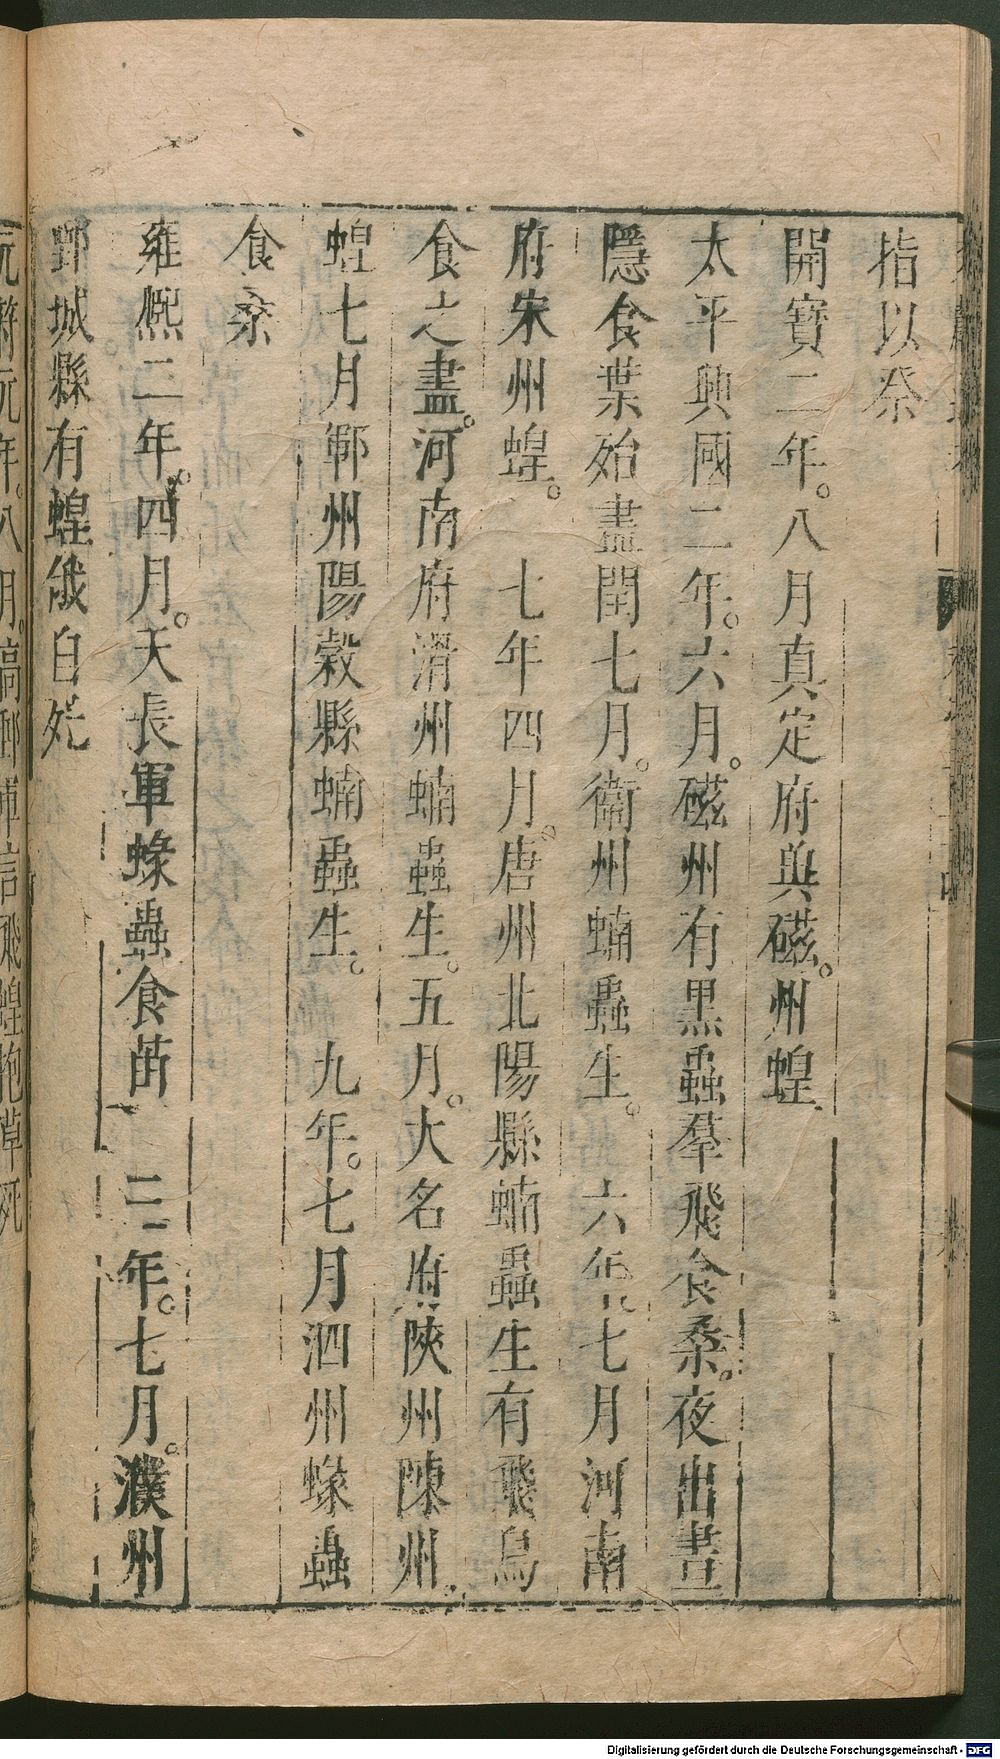 指以祭
開寶二年。八月真定府與磁。州蝗
太平興國二年。六月。磁州有黑蟲羣飛食桑。夜出晝
隱食葉始盡閏七月。衞州蝻蟲生。六年。七月河南
府宋州蝗。七年四月。唐州北陽縣蝻蟲生有飛鳥
食之盡。河南府滑州蝻蟲生。五月。大名府陝州陳州。
蝗七月鄆州陽穀縣蝻蟲生。九年。七月泗州蝝蟲
食桑
雍熙二年。四月。天長軍蝝蟲食苗 三年。七月。濮州
鄄城縣有蝗俄自死
元年。八月。飛蝗抱草死
Digitalisierung gefördert durch die Deutsche Forschungsgemeinschaft - DFG